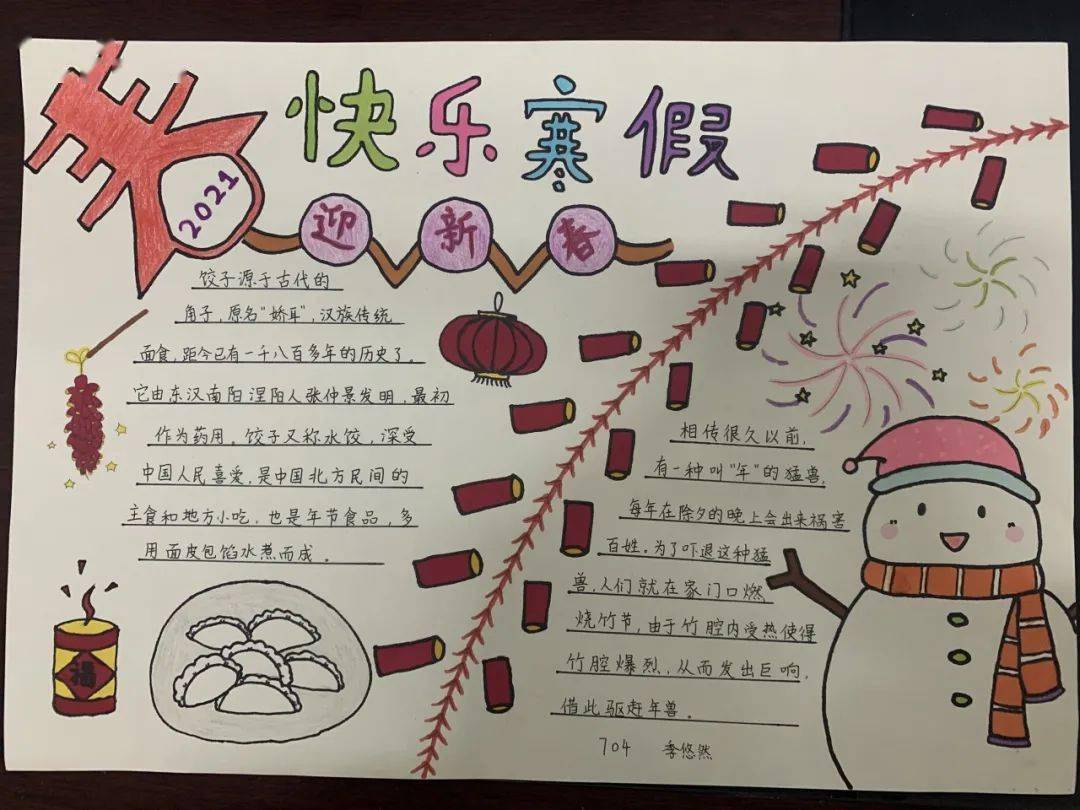 快乐寒假
春
2021
迎新春
饺子源于古代的
角子，原名"娇耳"，汉族传统
面食，距今已有一千八百多年的历史了。
它由东汉南阳涅阳人张仲景发明，最初
作为药用。饺子又称水饺，深受
中国人民喜爱，是中国北方民间的
主食和地方小吃，也是年节食品，多
用面皮包馅水煮而成。
福
相传很久以前，
有一种叫"年"的猛兽，
每年在除夕的晚上会出来祸害
百姓。为了吓退这种猛
兽，人们就在家门口燃
烧竹节，由于竹腔内受热使得
竹腔爆烈，从而发出巨响，
借此驱赶年兽。
704 李悠然